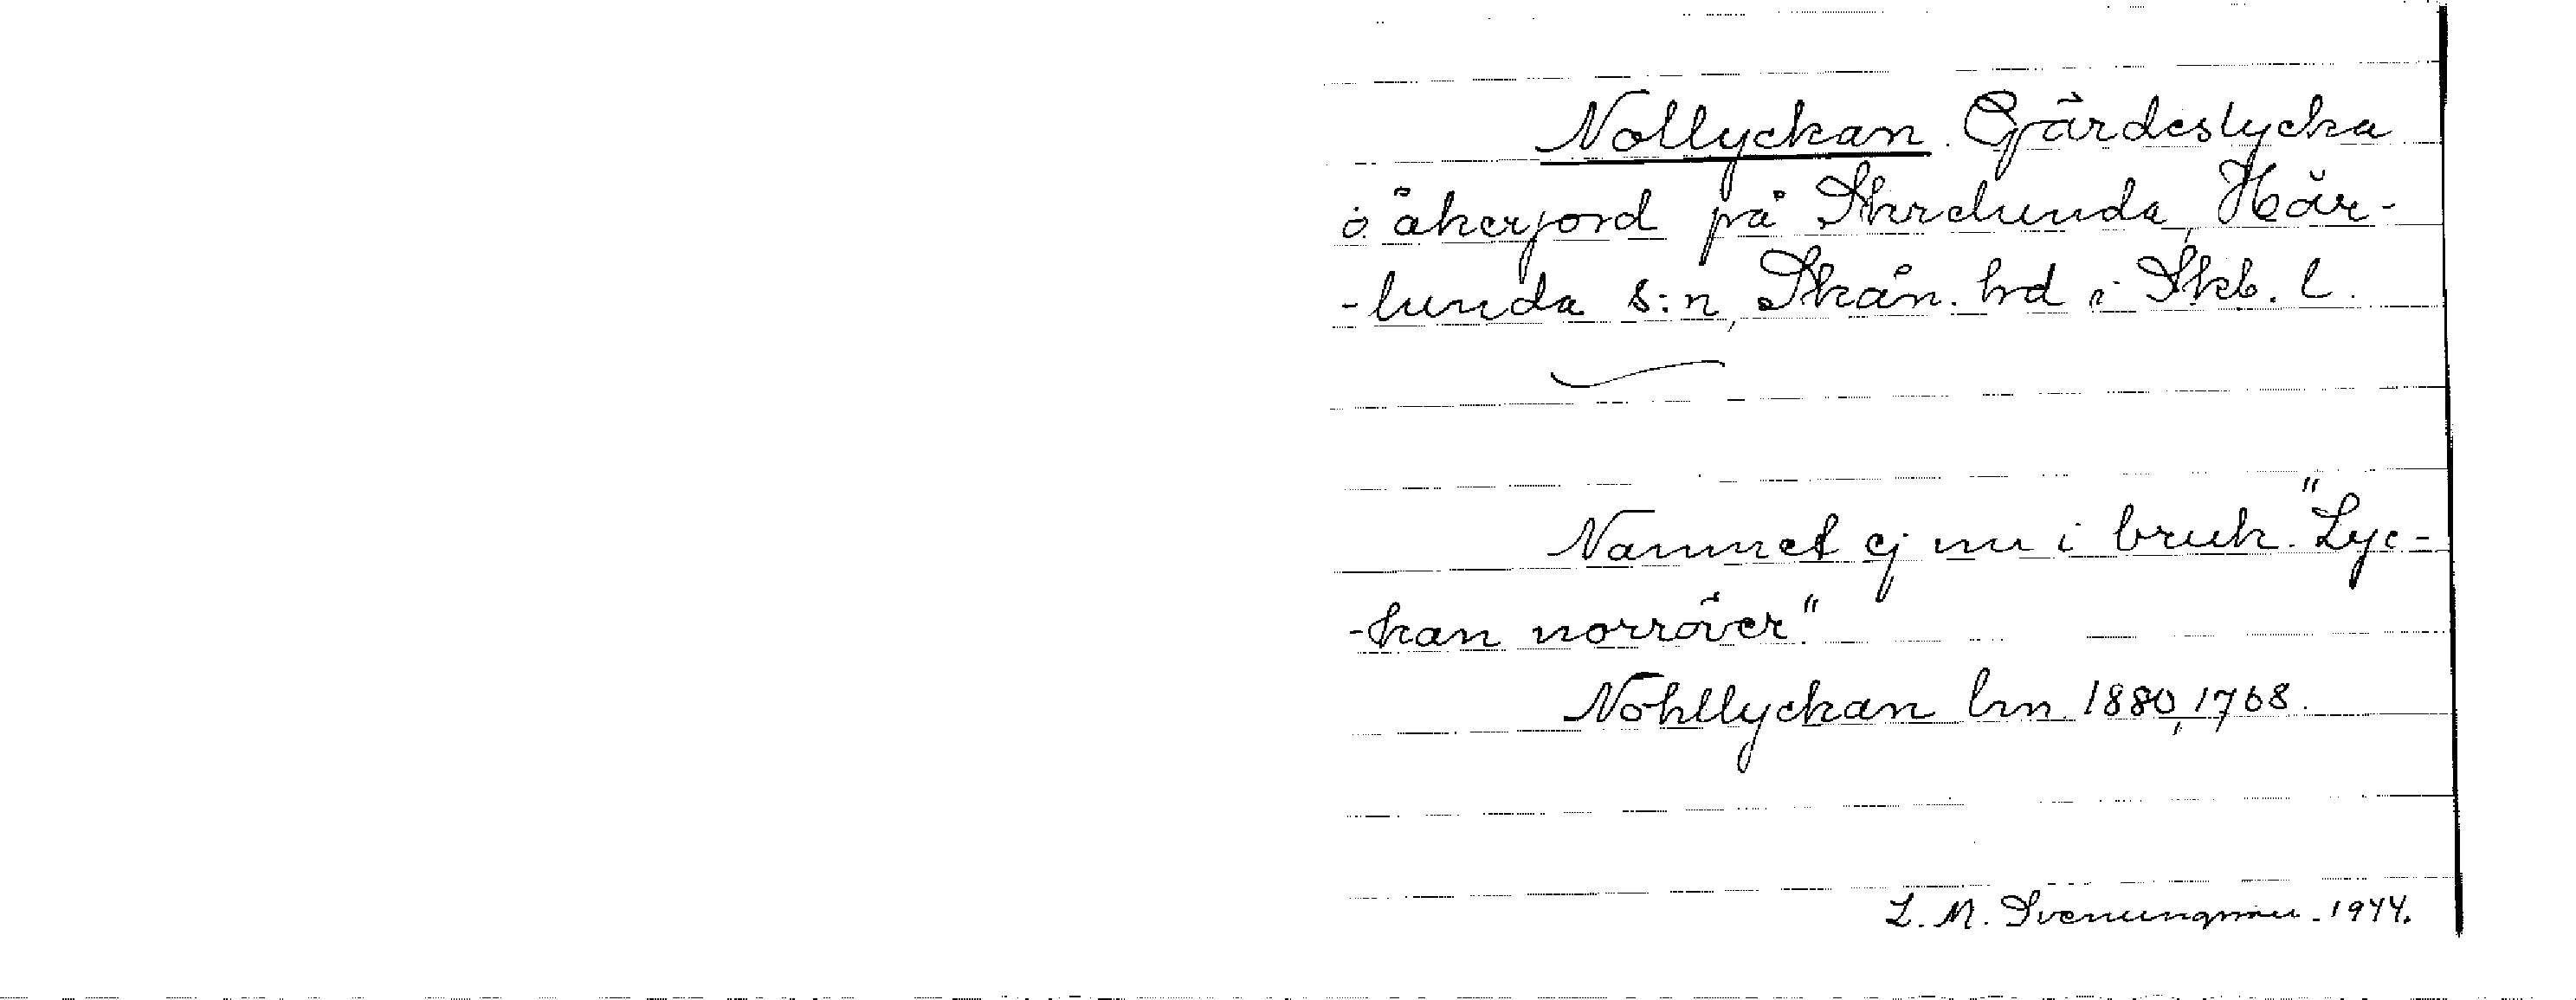 Nollyckan. Gärdeslycka
o. åkerjord på Skrelunda, Här-
-lunda s:n, Skån. hd i Skb. l.
Namnet ej nu i bruk. "Lyc-
-kan norröver."
Nohllyckan lm 1880, 1768.
L. M. Svenungsson. 1944.